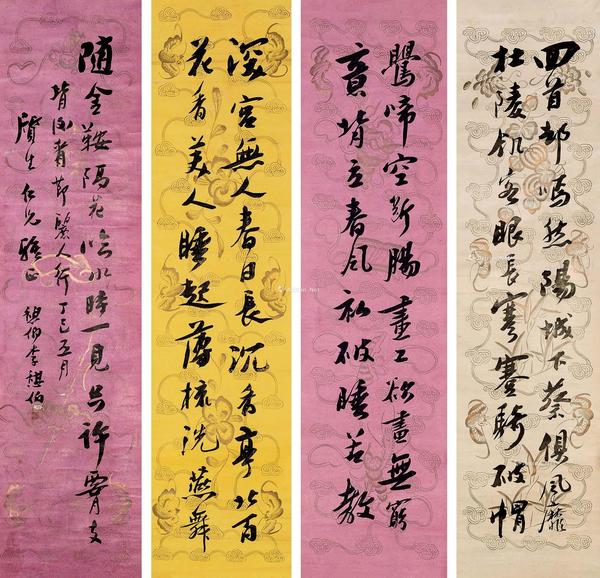 回首却嫣然陽城下蔡俱風靡
杜陵飢客眼長寒蹇驢破帽
鶯啼空斷腸畫工欲畫無窮
意背立春風初破睡若教
深宮無人春日長沉香亭北百
花香美人睡起薄梳洗燕舞
随金鞍隔花臨水時一見只許腰支
背後看節麗人行丁巳五月
質生仁兄雅正